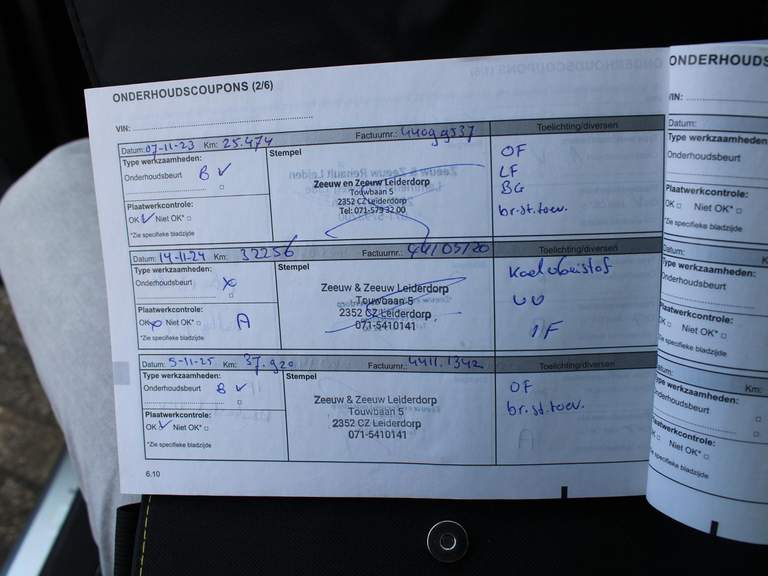 ONDERHOUDSCOUPONS (2/6)
VIN:
Datum: 07-11-23 Km: 25.474 Factuurnr.: 44099537 Toelichting/diversen
Type werkzaamheden:
Onderhoudsbeurt B ✓
Plaatwerkcontrole:
OK ✓ Niet OK* □
*Zie specifieke bladzijde
Stempel
Zeeuw en Zeeuw Leiderdorp
Touwbaan 5
2352 CZ Leiderdorp
Tel: 071-579 32 00
OF
LF
BG
br.st.toev.
Datum: 14-11-24 Km: 32256 Factuurnr.: Toelichting/diversen
Type werkzaamheden:
Onderhoudsbeurt x
Plaatwerkcontrole:
OK x Niet OK* □ A
*Zie specifieke bladzijde
Stempel
Zeeuw & Zeeuw Leiderdorp
Touwbaan 5
2352 CZ Leiderdorp
071-5410141
Koelvloeistof
IF
Datum: 5-11-25 Km: 37.920 Factuurnr.: 4411.1342 Toelichting/diversen
Type werkzaamheden:
Onderhoudsbeurt B ✓
Plaatwerkcontrole:
OK ✓ Niet OK* □
*Zie specifieke bladzijde
Stempel
Zeeuw & Zeeuw Leiderdorp
Touwbaan 5
2352 CZ Leiderdorp
071-5410141
OF
br.st.toev.
6.10
ONDERHOUDS
VIN:
Datum:
Type werkzaamheden:
Onderhoudsbeurt
Plaatwerkcontrole:
OK □ Niet OK* □
*Zie specifieke bladzijde
Datum:
Type werkzaamheden:
Onderhoudsbeurt
Plaatwerkcontrole:
Niet OK* □
*Zie specifieke bladzijde
Km:
Type werkzaamheden:
Onderhoudsbeurt
Plaatwerkcontrole:
Niet OK* □
*Zie specifieke bladzijde